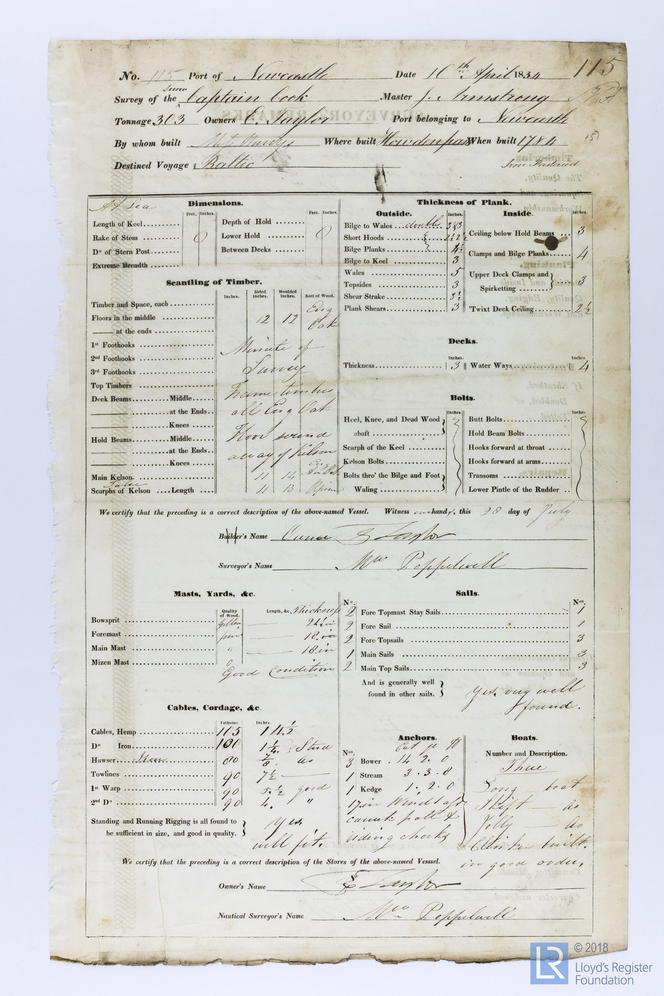 No. 115 Port of Newcastle Date 10th April 1834 115
Survey of the Captain Cook Master J. Armstrong
Tonnage 303 Owners E. Taylor Port belonging to Newcastle
By whom built Where built Howdenpans When built 1784
Destined Voyage Baltic
At sea
Dimensions.
Feet. Inches. Feet. Inches.
Length of Keel
Rake of Stem
Do. of Stern Post
Extreme Breadth
Depth of Hold
Lower Hold
Between Decks
Scantling of Timber.
Inches. Sided Inches. Moulded Inches. Sort of Wood.
Timber and Space, each
Floors in the middle 12 12 Eng Oak
at the ends
1st Foothooks Minute of
2nd Foothooks Survey
3rd Foothooks
Top Timbers
Deck Beams Middle Frame timbers
at the Ends all Eng Oak
Knees
Hold Beams Middle Floor second
at the Ends
Knees
Main Kelson 11 14
Scarphs of Kelson Length 11 13
Thickness of Plank.
Outside. Inches.
Bilge to Wales double
Short Hoods
Bilge Planks
Bilge to Keel 3
Wales 5
Topsides 3
Shear Strake 3½
Plank Shears 3
Inside. Inches.
Ceiling below Hold Beams 3
Clamps and Bilge Planks 4
Upper Deck Clamps and Spirketting 3
Twixt Deck Ceiling 2½
Decks.
Inches. Inches.
Thickness 3 Water Ways 4
Bolts.
Inches. Inches.
Heel, Knee, and Dead Wood abaft
Scarph of the Keel
Kelson Bolts
Bolts thro' the Bilge and Foot Waling
Butt Bolts
Hold Beam Bolts
Hooks forward at throat
Hooks forward at arms
Transoms
Lower Pintle of the Rudder
We certify that the preceding is a correct description of the above-named Vessel. Witness hand, this 28 day of July
Builder's Name Owner E Taylor
Surveyor's Name Mw Poppelwell
Masts, Yards, &c.
Quality of Wood. Length, &c. Thickness
Bowsprit
Foremast 18 in
Main Mast " 18 in
Mizen Mast
Good Condition
Sails.
No. No.
2 Fore Topmast Stay Sails 1
2 Fore Sail 1
2 Fore Topsails 3
1 Main Sails 3
2 Main Top Sails 3
And is generally well found in other sails. yes, very well found.
Cables, Cordage, &c.
Fathoms. Inches.
Cables, Hemp 115 14½
Do. Iron 100 1¼ Stud
Hawser 80
Towlines 90 7½
1st Warp 90 5½ good
2nd Do. 90 4. "
Standing and Running Rigging is all found to be sufficient in size, and good in quality. yes,
will fit.
Anchors.
No. Cwt qr lb
3 Bower 14. 2. 0
1 Stream 3. 3. 8
1 Kedge 1. 2. 0
Windlass
riding chocks
Boats.
Number and Description.
Three
Long boat
Skiff do
Jolly do
Clinker built,
in good order,
We certify that the preceding is a correct description of the Stores of the above-named Vessel.
Owner's Name E Taylor
Nautical Surveyor's Name Mw Poppelwell
LR © 2018
Lloyd's Register
Foundation